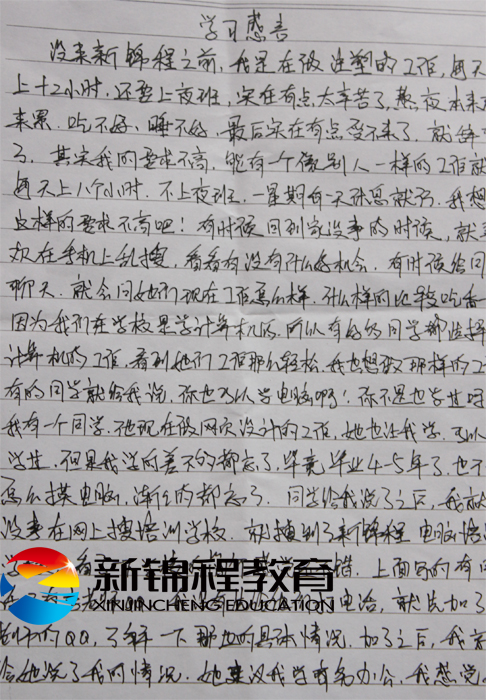 学习感言
没来新锦程之前,我是在做注塑的工作,每天
上十二小时.还要上夜班,实在有点太辛苦了,熬夜本来
来累.吃不好、睡不好.最后实在有点受不来了.就辞
了.其实我的要求不高,能有一个像别人一样的工作就
每天上八个小时.不上夜班.一星期有一天休息就行.我想
这样的要求不高吧!有时候回到家没事的时候,就
欢在手机上乱搜,看看有没有什么好机会.有时候给同
聊天.就会问她们现在工作怎么样.什么样的比较吃香
因为我们在学校是学计算机的.所以有好多同学都选择
计算机的工作,看到她们工作那么轻松.我也想做那样的工
有的同学就给我说.你也可以学电脑啊!你不是也学过吗
我有一个同学.他现在做网页设计的工作,她也让我学.可以
学过.但是我学的差不多都忘了,毕竟毕业4-5年了.也不
怎么摸电脑,渐渐的都忘了.同学给我说了之后,我就
没事在网上搜培训学校.就搜到了新锦程电脑培
错.上面写的有
电话,就点加了
QQ,了解一下那边的具体情况.加了之后,我就
给她说了我的情况.她建议我学商务办公,我想觉
新锦程教育
XINJINCHENG EDUCATION